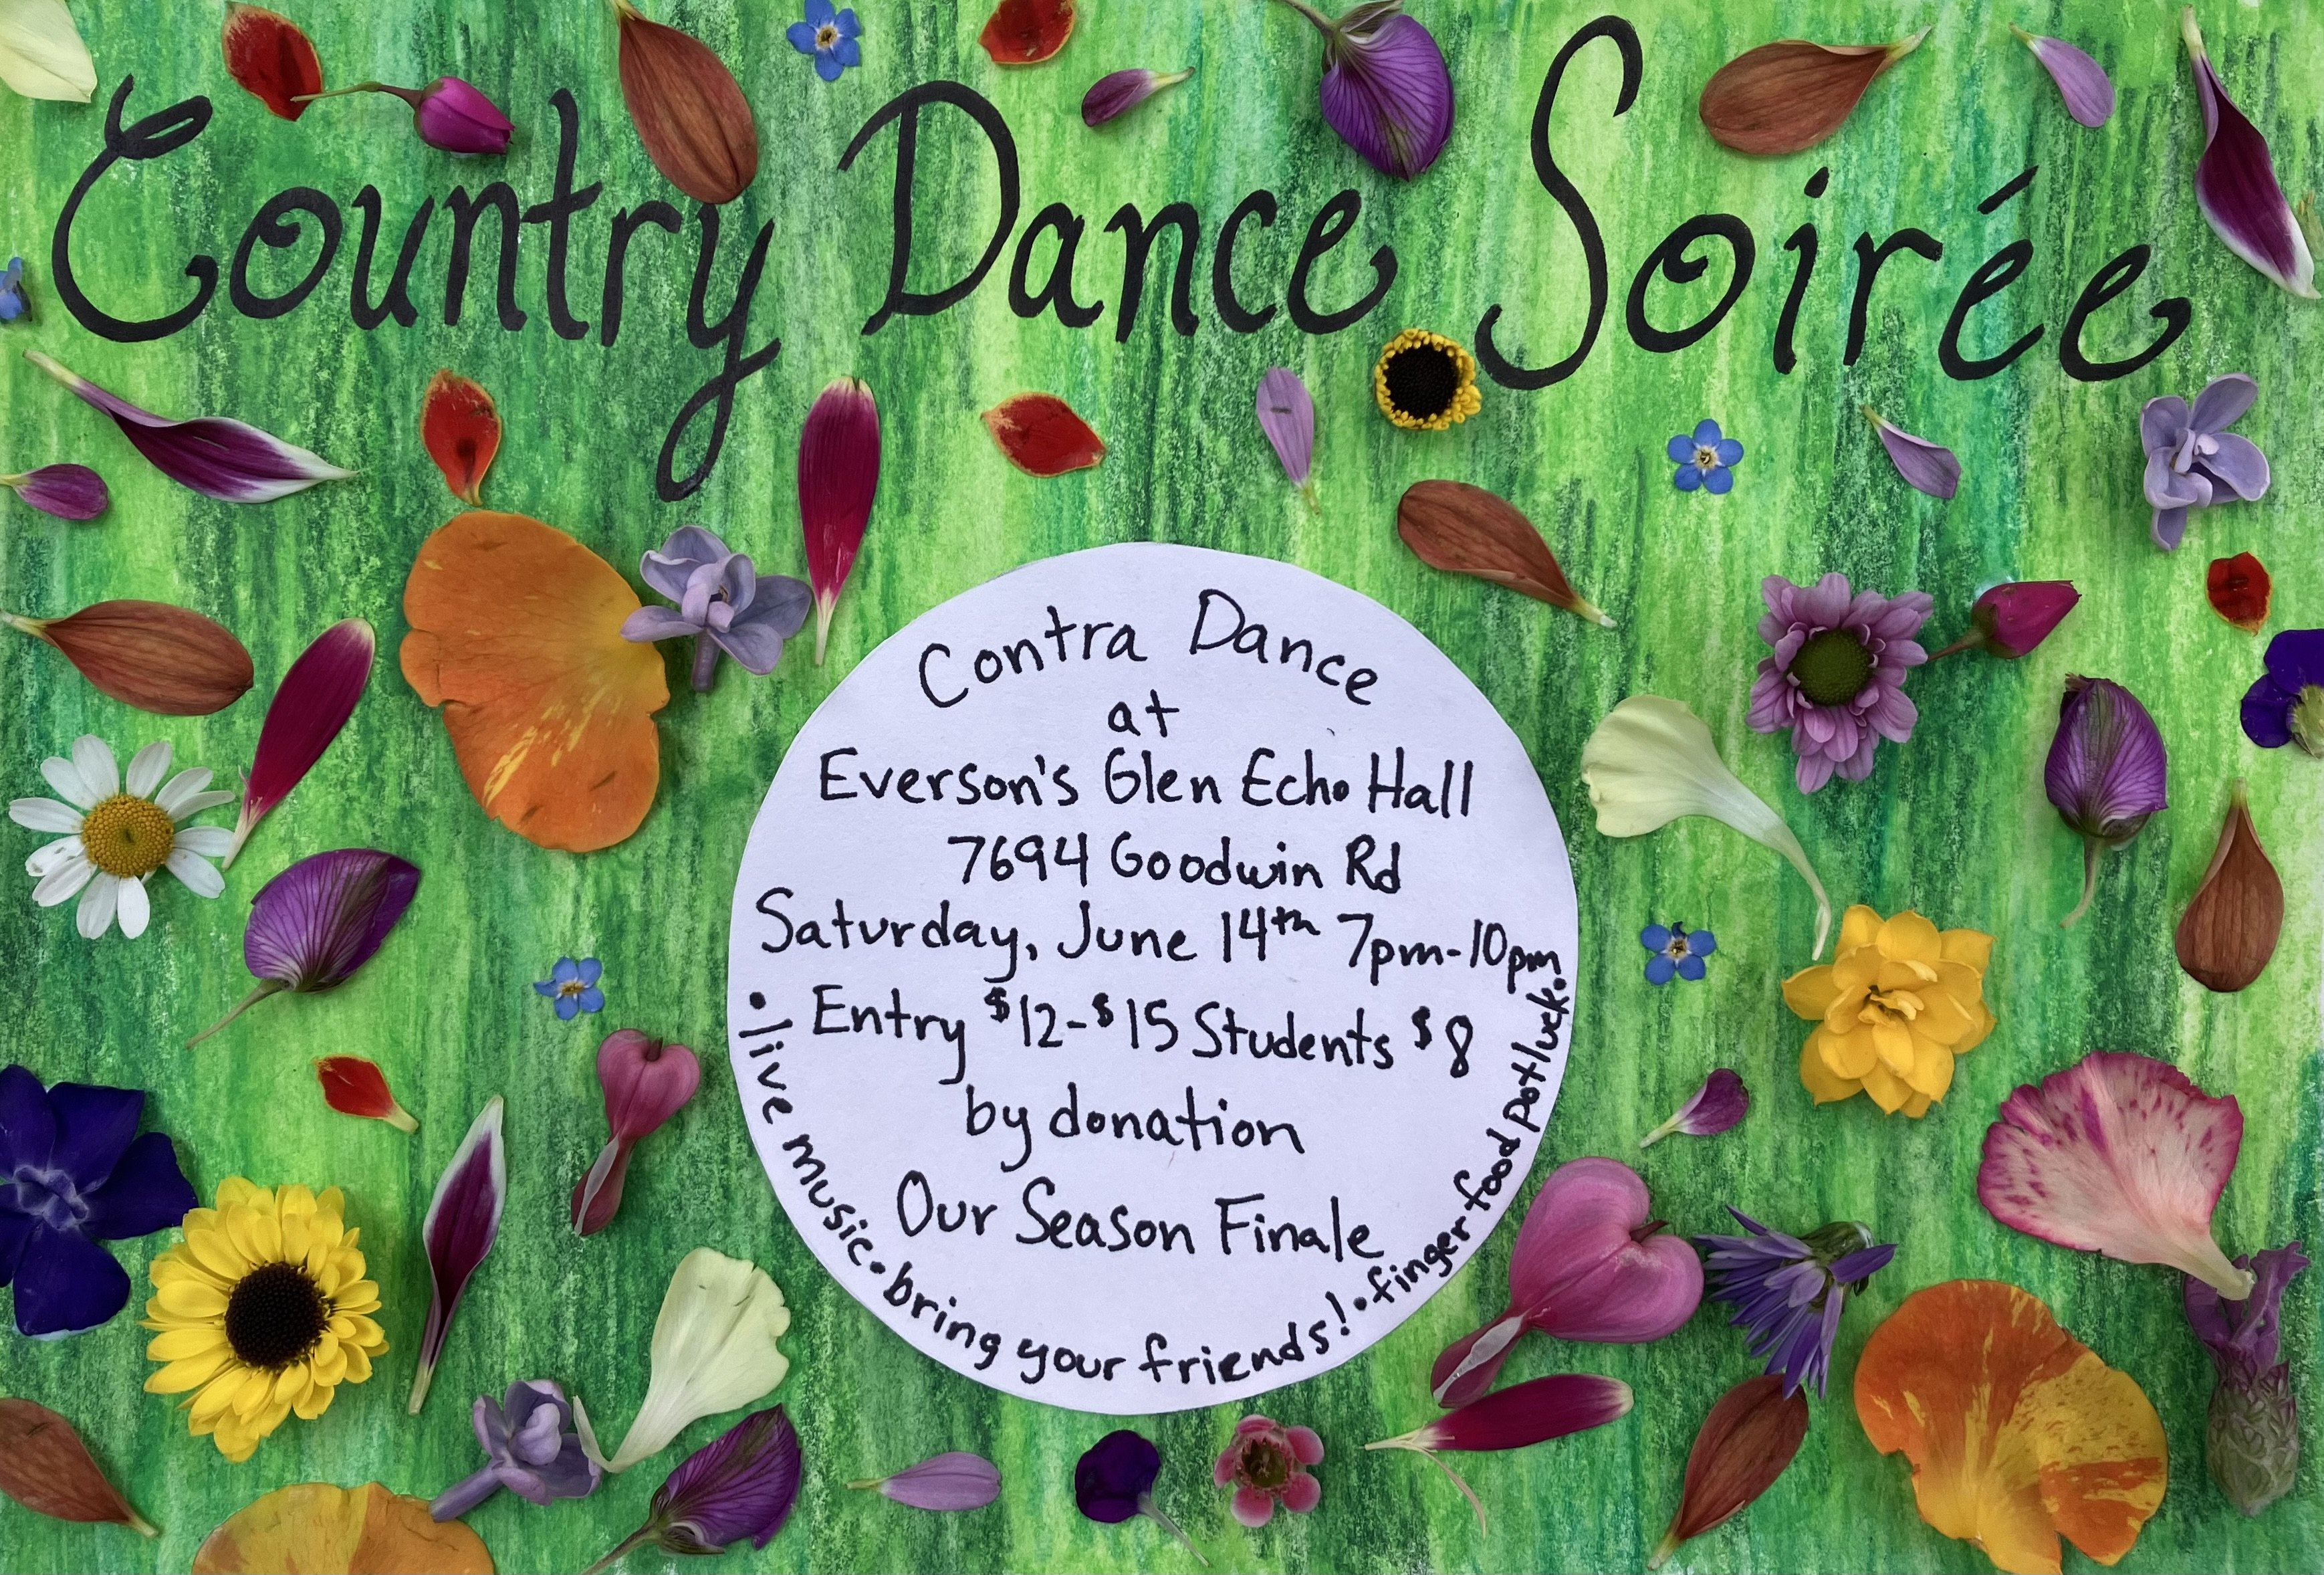 Country Dance Soirée
Contra Dance
at
Everson's Glen Echo Hall
7694 Goodwin Rd
Saturday, June 14th 7pm-10pm
Entry $12-$15 Students $8
by donation
Our Season Finale
•live music•bring your friends!•finger food potluck•